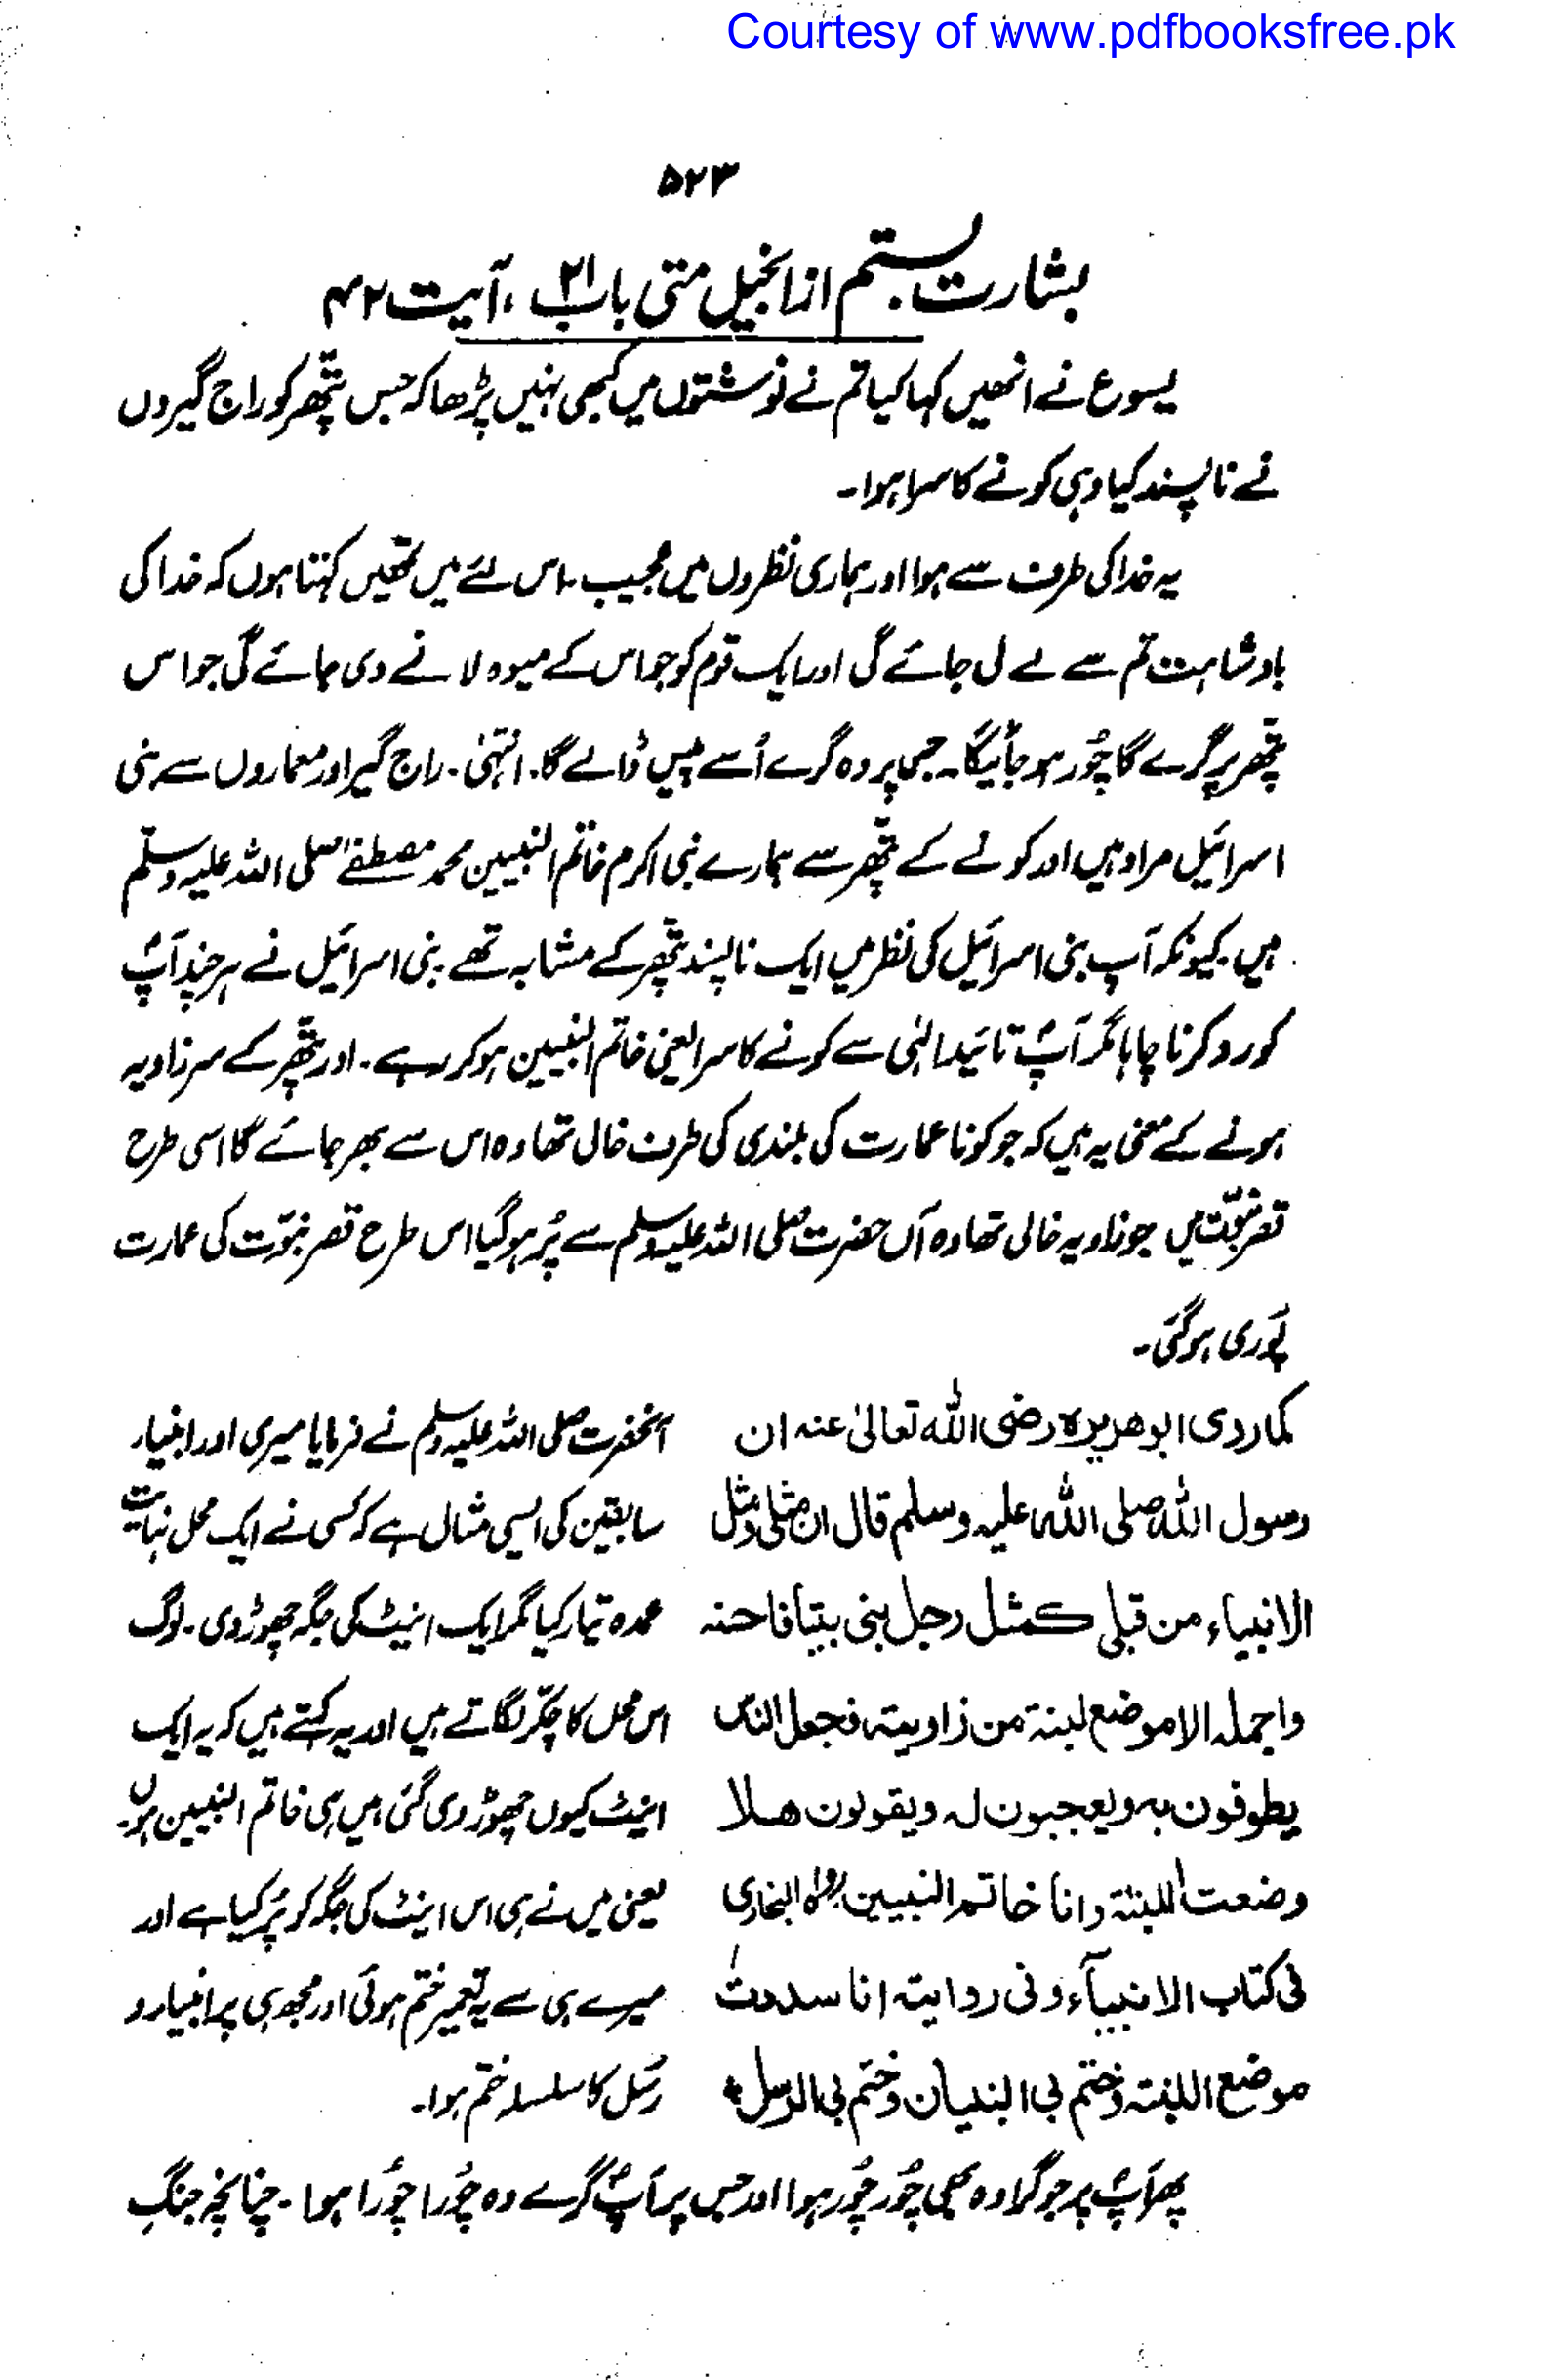 Courtesy of www.pdfbooksfree.pk
۵۲۳
بشارت بستم از انجیل متی باب ۲۱، آیت ۴۲
یسوع نے انھیں کہا کیا تم نے نوشتوں میں کبھی نہیں پڑھا کہ جس پتھر کو راج گیروں
نے ناپسند کیا وہی کونے کا سرا ہوا۔
یہ خدا کی طرف سے ہوا اور ہماری نظروں میں عجیب۔ اس لئے میں تمھیں کہتا ہوں کہ خدا کی
بادشاہت تم سے لے لی جائے گی اور ایک قوم کو جو اس کے میوہ لا نے دی جائے گی جو اس
پتھر پر گرے گا چُور ہو جائیگا۔ جس پر وہ گرے اُسے پیس ڈالے گا۔ انتہیٰ۔ راج گیر اور معماروں سے بنی
اسرائیل مراد ہیں اور کونے کے پتھر سے ہمارے نبی اکرم خاتم النبیین محمد مصطفےٰ صلی اللہ علیہ وسلّم
ہیں۔ کیونکہ آپ بنی اسرائیل کی نظر میں ایک ناپسند پتھر کے مشابہ تھے۔ بنی اسرائیل نے ہر چند آپؐ
کو رد کرنا چاہا مگر آپؐ تائید الٰہی سے کونے کا سرا یعنی خاتم النبیین ہو کر رہے۔ اور پتھر کے سر زاویہ
ہونے کے معنی یہ ہیں کہ جو کونا عمارت کی بلندی کی طرف خالی تھا وہ اس سے بھر جائے گا اسی طرح
قصر نبوّت میں جو زاویہ خالی تھا وہ آں حضرت صلی اللہ علیہ وسلم سے پُر ہو گیا اس طرح قصر نبوّت کی عمارت
پوری ہو گئی۔
کما روی ابو ھریرہ رضی اللہ تعالیٰ عنہ ان
رسول اللہ صلی اللہ علیہ وسلم قال ان مثلی و مثل
الانبیاء من قبلی کمثل رجل بنی بیتا فاحسنہ
واجملہ الا موضع لبنۃ من زاویتہ فجعل الناس
یطوفون بہ ویعجبون لہ ویقولون ھلا
وضعت اللبنۃ وانا خاتم النبیین رواہ البخاری
فی کتاب الانبیآء وفی روایتہ انا سددت
موضع اللبنۃ وختم بی البنیان وختم بی الرسل
آنحضرت صلی اللہ علیہ وسلم نے فرمایا میری اور انبیاء
سابقین کی ایسی مثال ہے کہ کسی نے ایک محل نہایت
عمدہ تیار کیا مگر ایک اینٹ کی جگہ چھوڑ دی۔ لوگ
اس محل کا چکر لگاتے ہیں اور یہ کہتے ہیں کہ یہ ایک
اینٹ کیوں چھوڑ دی گئی میں ہی خاتم النبیین ہوں۔
یعنی میں نے ہی اس اینٹ کی جگہ کو پُر کیا ہے اور
میرے ہی سے یہ تعمیر ختم ہوئی اور مجھ ہی پر انبیاء و
رسُل کا سلسلہ ختم ہوا۔
پھر آپؐ پر جو گرا وہ بھی چُور چُور ہوا اور جس پر آپؐ گرے وہ چُورا چُورا ہوا۔ چنانچہ جنگِ